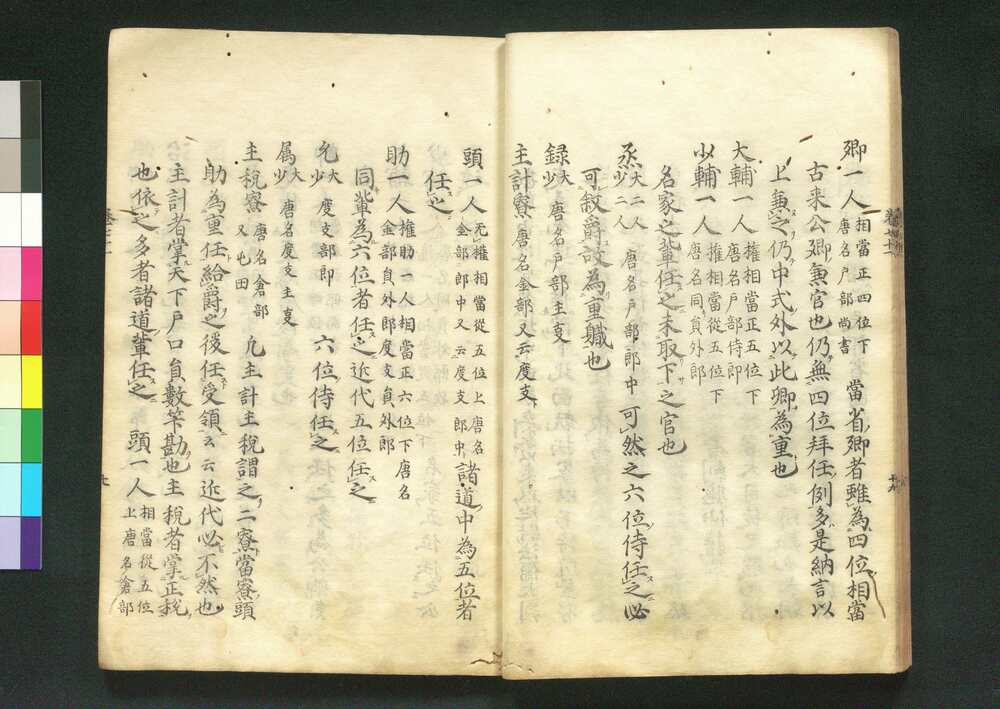 卿一人 相當正四位下 唐名戸部尚書 當省卿者雖為四位相當
古来公卿兼官也仍無四位拜任例多是納言以
上兼之仍中式外以此卿為重也
大輔一人 權相當正五位下 唐名戸部侍郎
少輔一人 權相當從五位下 唐名同負外郎
名家之輩任之未取下之官也
丞 大二人 少二人 唐名戸部郎中 可然之六位侍任之必
可敘爵故為重職也
録 大 少 唐名戸部主㕝
主計寮 唐名金部又云度支
頭一人 无權相當從五位上唐名 金部郎中又云度支郎中 諸道中為五位者
任之
助一人 權助一人相當正六位下唐名 金部負外郎度支負外郎
同輩為六位者任之近代五位任之
允 大 少 度支部郎 六位侍任之
属 大 少 唐名度支主㕝
主税寮 唐名倉部 又屯田 凡主計主税謂之二寮當寮頭
助為重任給爵之後任受領云云近代必不然也
主計者掌天下戸口負數笇勘也主税者掌正税
也依之多者諸道輩任之 頭一人 相當從五位 上唐名倉部